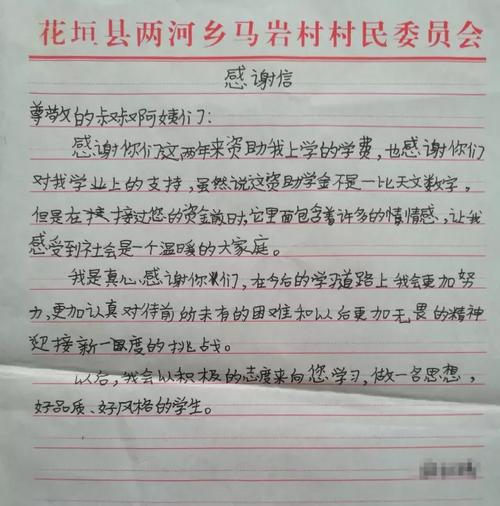 花垣县两河乡马岩村村民委员会
感谢信
尊敬的叔叔阿姨们：
感谢你们这两年来资助我上学的学费，也感谢你们
对我学业上的支持，虽然说这资助学金不是一比天文数字。
但是在接过您的资金前时，它里面包含着许多的情情感，让我
感受到社会是一个温暖的大家庭。
我是真心感谢你们，在今后的学习道路上我会更加努
力，更加认真对待前的未有的困难和以后更加无畏的精神
迎接新一度的挑战。
以后，我会以积极的态度来向您学习，做一名思想，
好品质、好风格的学生。